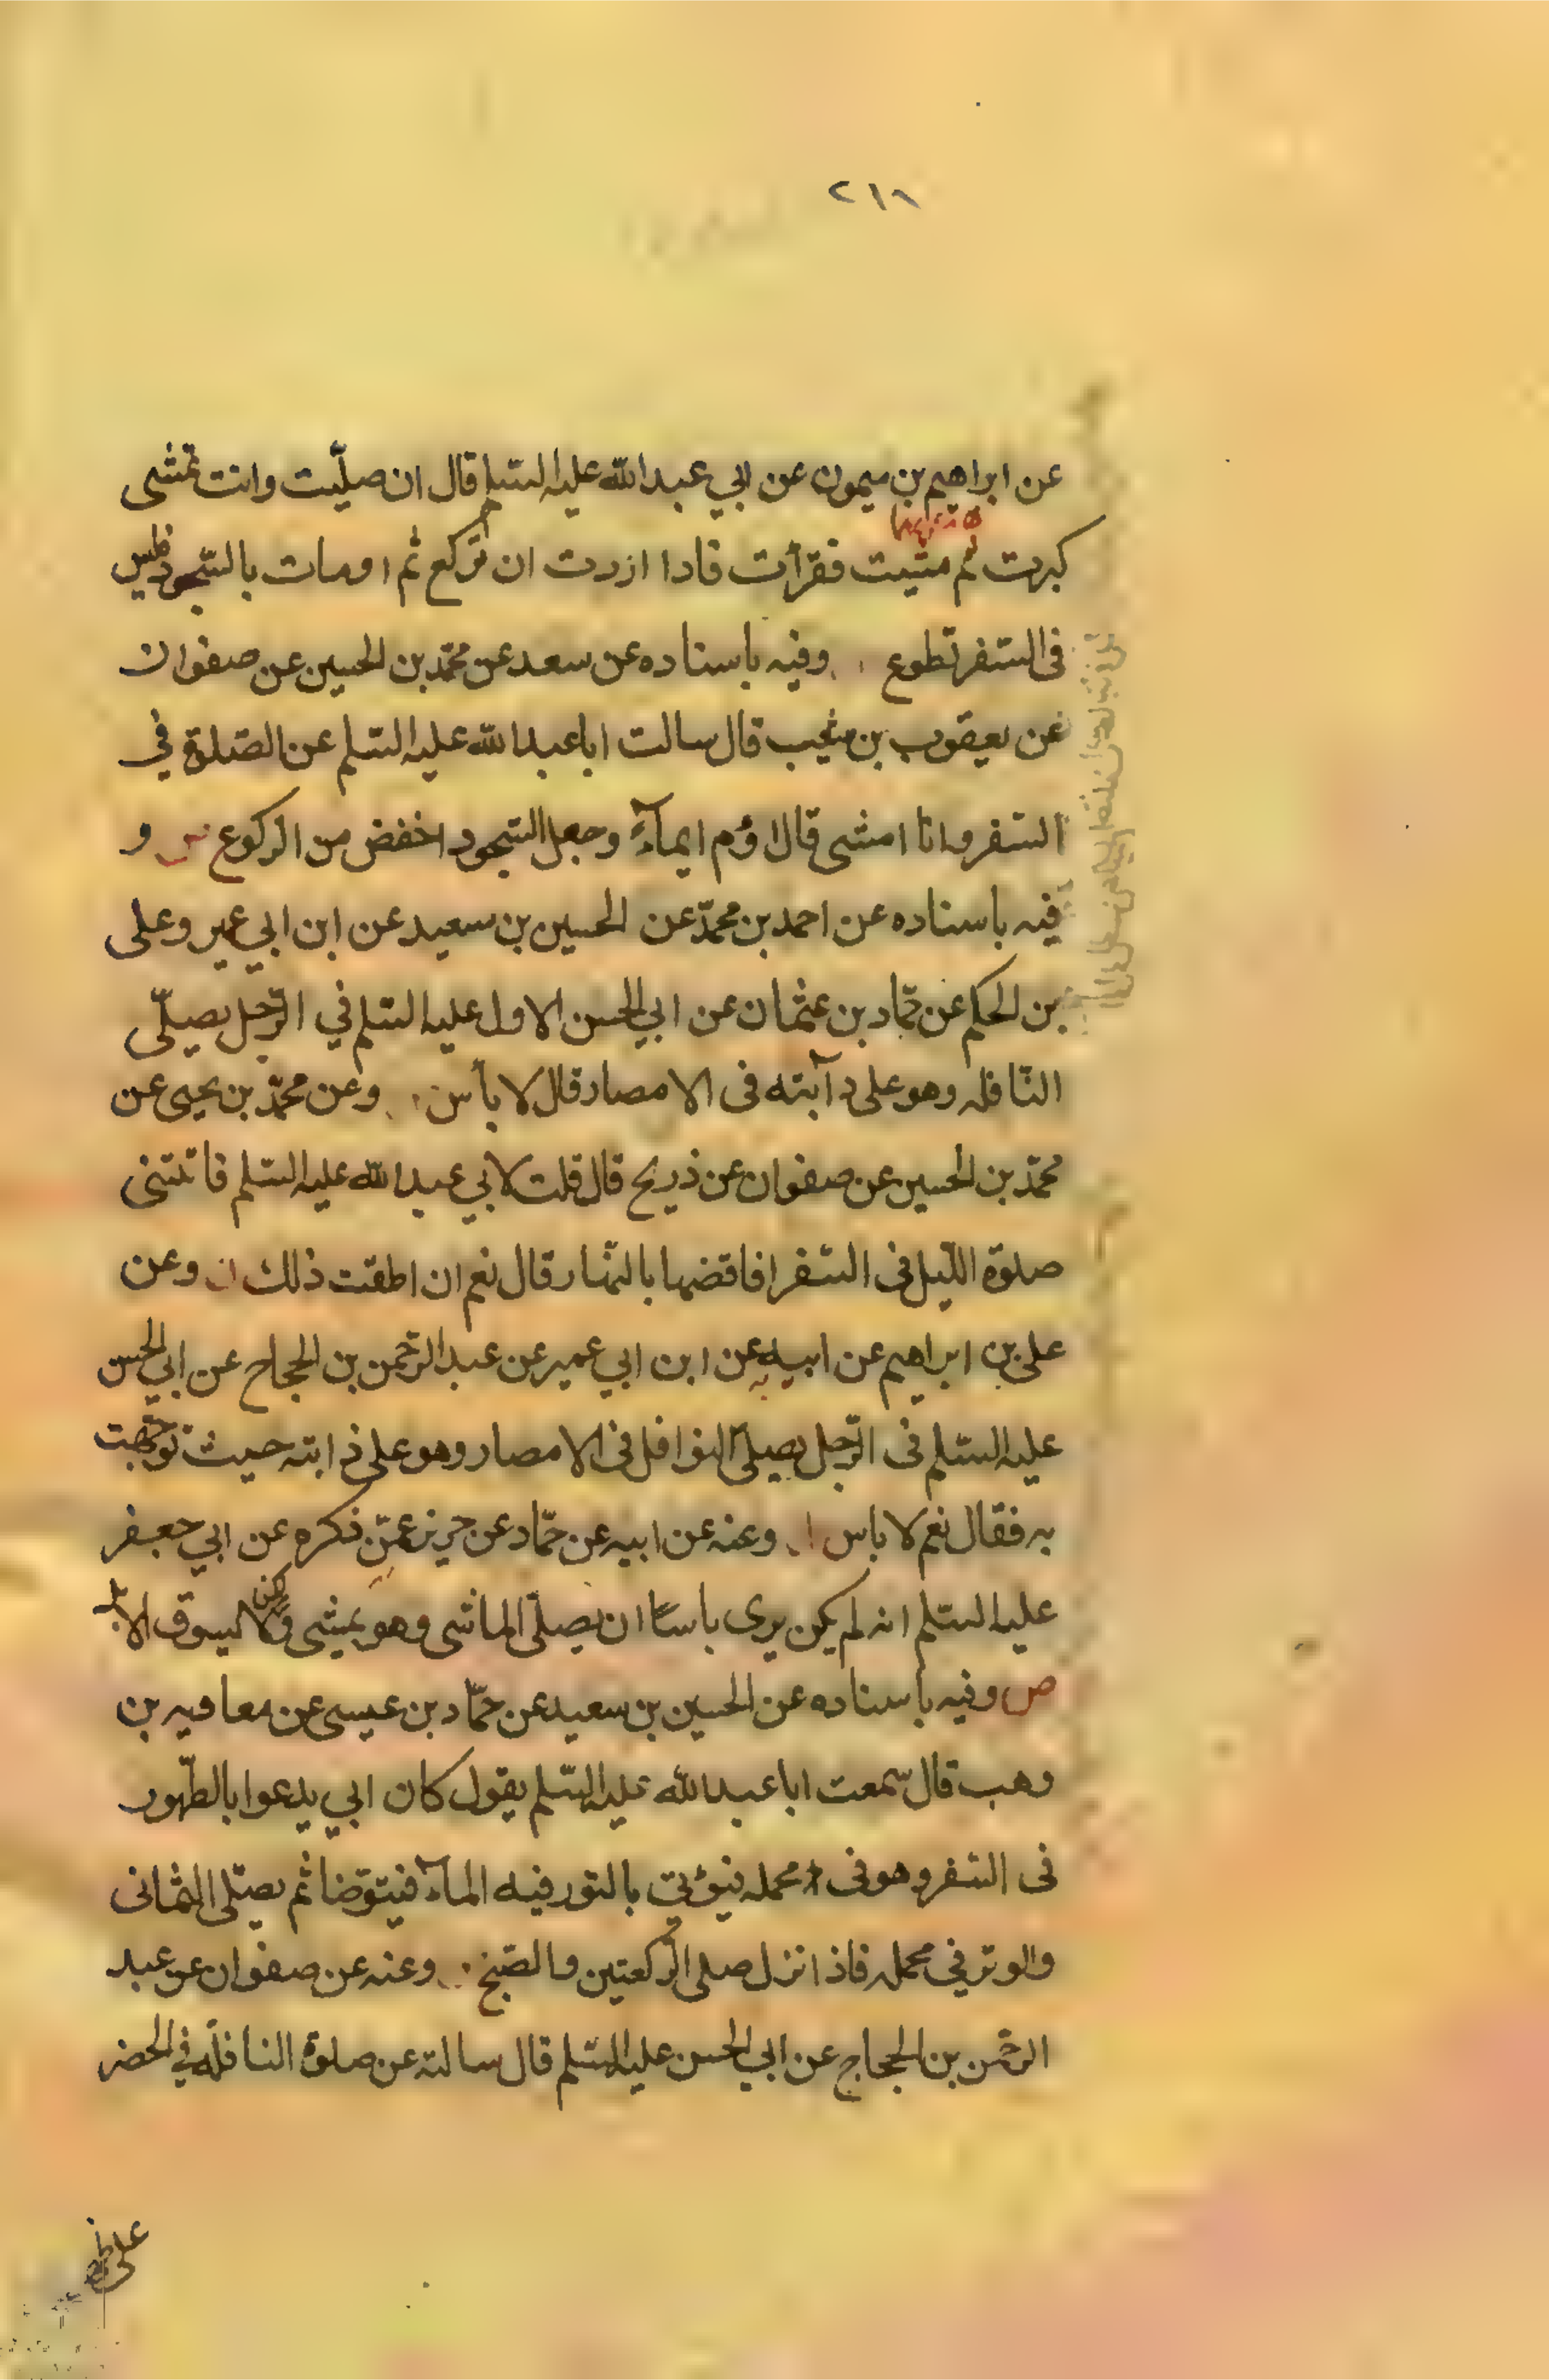 ٢١٨
عن ابراهيم بن ميمون عن ابي عبد الله عليه السلم قال ان صلّيت وانت تمشى
كبرت ثم مشيت فقرأت فاذا اردت ان تركع ثم اومات بالسّجود فليس
فى السّفر تطوع وفيه باسناده عن سعد عن محمّد بن الحسين عن صفوان
عن يعقوب بن شعيب قال سالت ابا عبد الله عليه السّلم عن الصّلوة في
السّفر وانا امشى قال اوْم ايمآءً وجعل السّجود اخفض من الركوع و
فيه باسناده عن احمد بن محمّد عن الحسين بن سعيد عن ابن ابي عمير وعلى
بن الحكم عن حمّاد بن عثمان عن ابي الحسن الاول عليه السّلم في الرّجل يصلّى
النّافله وهو على دآبته فى الامصار قال لا بأس وعن محمّد بن يحيى عن
محمّد بن الحسين عن صفوان عن ذريح قال قلت لابي عبد الله عليه السّلم فاتتنى
صلوة اللّيل فى السّفر افاقضها بالنّهار قال نعم ان اطقت ذلك ن وعن
على بن ابراهيم عن ابيه عن ابن ابي عمير عن عبد الرّحمن بن الحجاج عن ابي الحسن
عليه السّلم فى الرّجل يصلّى النوافل فى الامصار وهو على دابته حيث توجّهت
به فقال نعم لا باس وعنه عن ابيه عن حمّاد عن حريز عمّن ذكره عن ابي جعفر
عليه السّلم انه لم يكن يرى باسًا ان يصلّى الماشى وهو يمشى ولكن لا يسوق الابل
ص وفيه باسناده عن الحسين بن سعيد عن حمّاد بن عيسى عن معاويه بن
وهب قال سمعت ابا عبد الله عليه السّلم يقول كان ابي يدعوا بالطّهور
فى السّفر وهو فى محمله فيؤتي بالتور فيه المآء فيتوضا ثم يصلّى الثمانى
والوتر في محمله فاذا نزل صلى الرّكعتين والصّبح وعنه عن صفوان عن عبد
الرحّمن بن الحجاج عن ابي الحسن عليه السّلم قال سالته عن صلوة النافله في الحضر
على